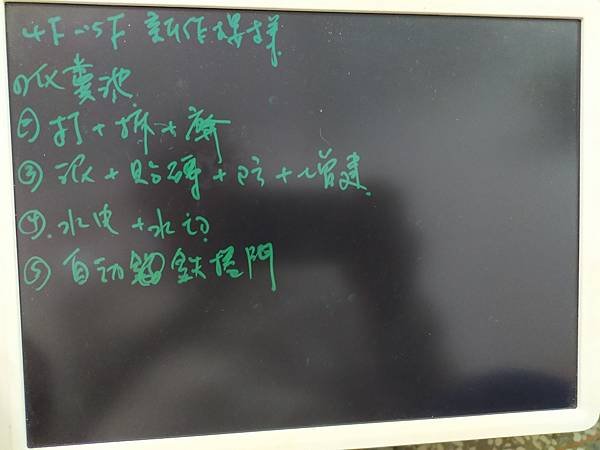 4F~5F 新作樓梯
①化糞池
②打+拆+廢
③泥+貼磚+防+增建
④水电+水切
⑤自动鋁鐵捲門